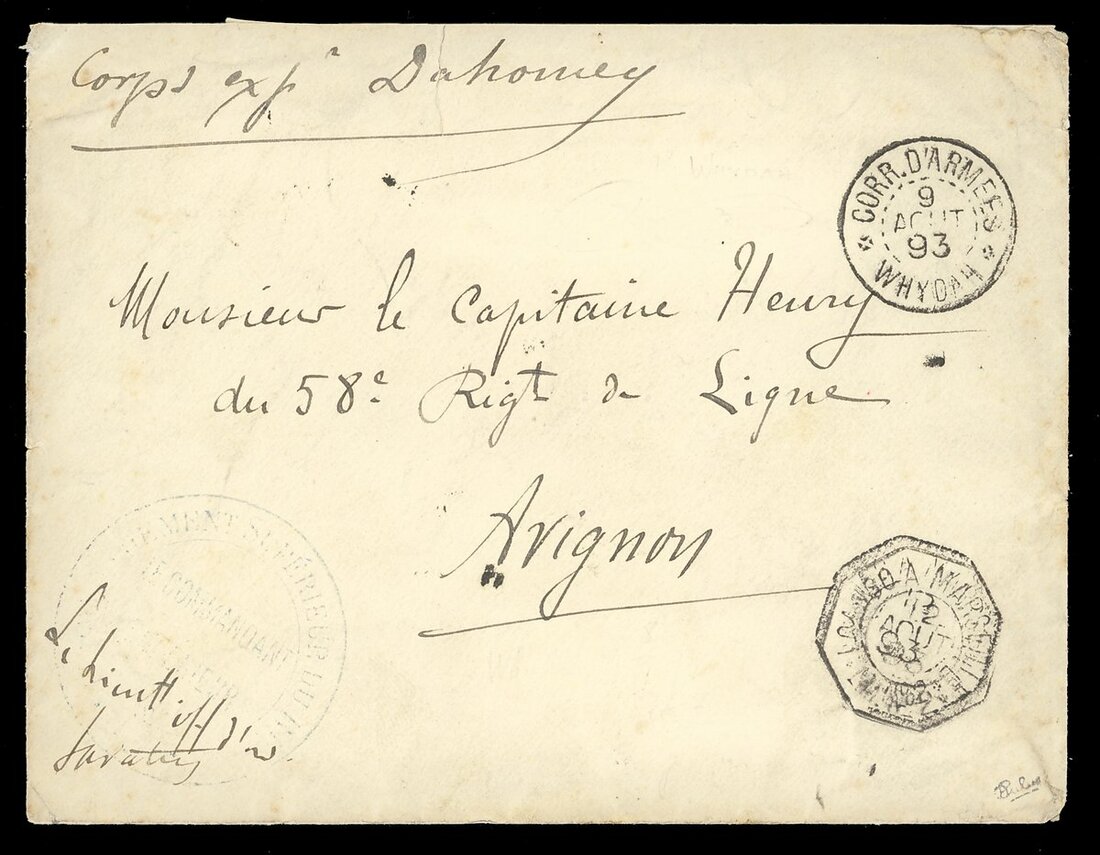 Corps expre Dahomey
CORR. D'ARMEES
9
AOUT
93
WHYDAH
Monsieur le Capitaine Henry
du 58e Rigt de Ligne
Avignon
SUPÉRIEUR DU
LE COMMANDANT
LOANGO A MARSEILLE
12
AOUT
93
Le Lieutt off d'or